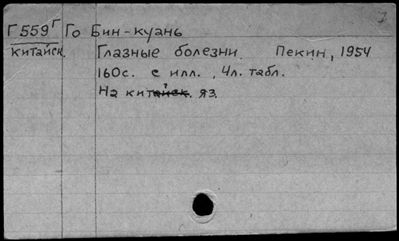 Г559Г Го Бин-куань
китайск. Глазные болезни. Пекин, 1954
160с. с илл., 4л. табл.
На китайск. яз.